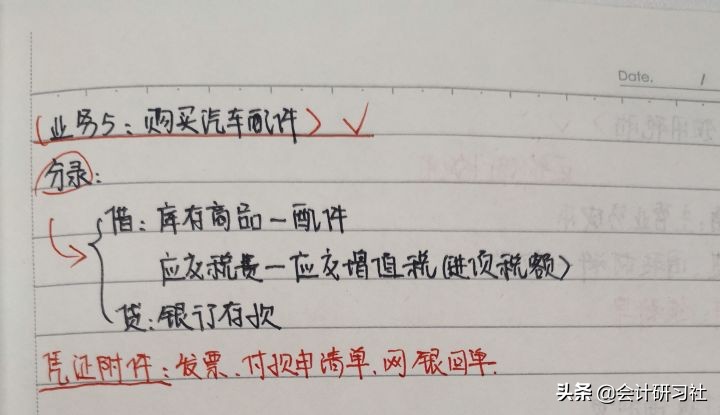 Date. 1
(业务5:购买汽车配件) ✓
分录:
借:库存商品－配件
应交税费－应交增值税(进项税额)
贷:银行存款
凭证附件:发票、付款申请单、网银回单.
头条 @会计研习社